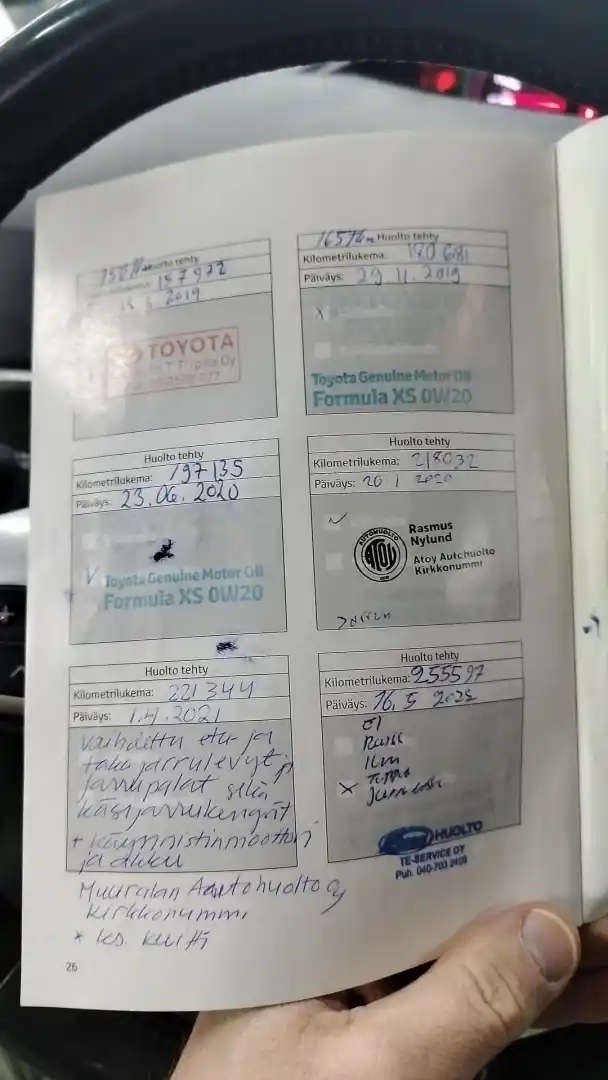 Huolto tehty
157922
15.5.2019
TOYOTA
Huolto tehty
Kilometrilukema: 180 681
Päiväys: 29 11. 2019
Toyota Genuine Motor Oil
Formula XS 0W20
Huolto tehty
Kilometrilukema: 197135
Päiväys: 23.06.2020
Toyota Genuine Motor Oil
Formula XS 0W20
Huolto tehty
Kilometrilukema: 218032
Päiväys:
AUTOHUOLTO
ATOY
Rasmus
Nylund
Atoy Autohuolto
Kirkkonummi
Huolto tehty
Kilometrilukema: 221344
Päiväys: 1.4.2021
Vaihdettu etu ja
taka jarrulevyt
jarrupalat sekä
käsijarrukengät
+ käynnistinmoottori
ja akku
Muuralan Autohuolto Oy
Kirkkonummi
* ks. kuitti
Huolto tehty
Kilometrilukema: 255597
Päiväys: 16.5
HUOLTO
TE-SERVICE OY
Puh. 040-703
26